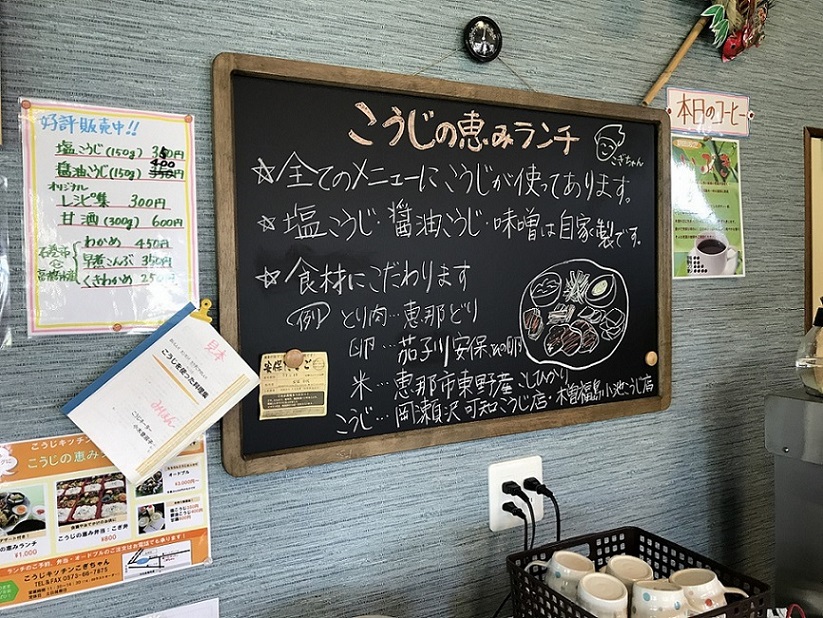 好評販売中!!
塩こうじ(150g) 350円
醤油こうじ(150g) 400
オリジナル
レシピ集 300円
甘酒(300g) 600円
わかめ 450円
早煮こんぶ 350円
くきわかめ 250円
石巻市
見本
こうじを使った料理集
こうじキッチン
こうじの恵み
オードブル
¥1,000
¥800
ランチのご予約、弁当・オードブルのご注文はお電話でも承ります!
こうじキッチンこぎちゃん
TEL&FAX 0573-66-7875
こうじの恵みランチ
こぎちゃん
☆全てのメニューにこうじが使ってあります。
☆塩こうじ・醤油こうじ・味噌は自家製です。
☆食材にこだわります
(例) とり肉…恵那どり
卵…茄子川安保さんの卵
米…恵那市東野産こしひかり
こうじ…岡瀬沢 可知こうじ店・木曽福島小池こうじ店
本日のコーヒー